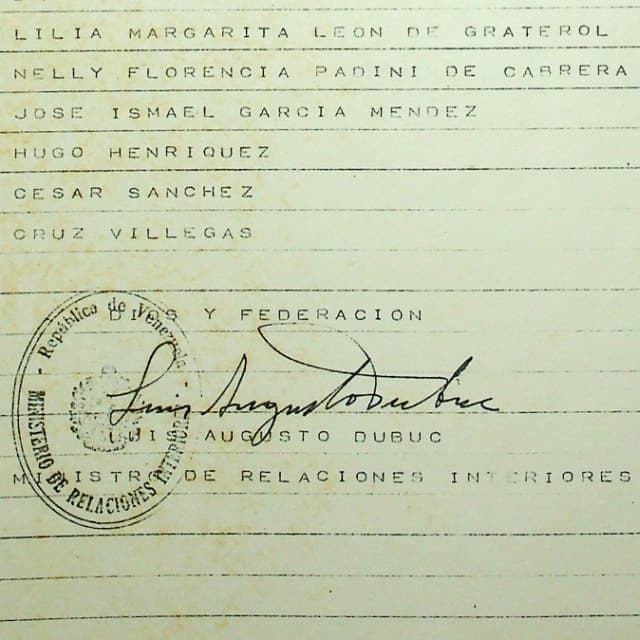 LILIA MARGARITA LEON DE GRATEROL
NELLY FLORENCIA PADINI DE CABRERA
JOSE ISMAEL GARCIA MENDEZ
HUGO HENRIQUEZ
CESAR SANCHEZ
CRUZ VILLEGAS
DIOS Y FEDERACION
República de Venezuela
MINISTERIO DE RELACIONES INTERIORES
Luis Augusto Dubuc
LUIS AUGUSTO DUBUC
MINISTRO DE RELACIONES INTERIORES